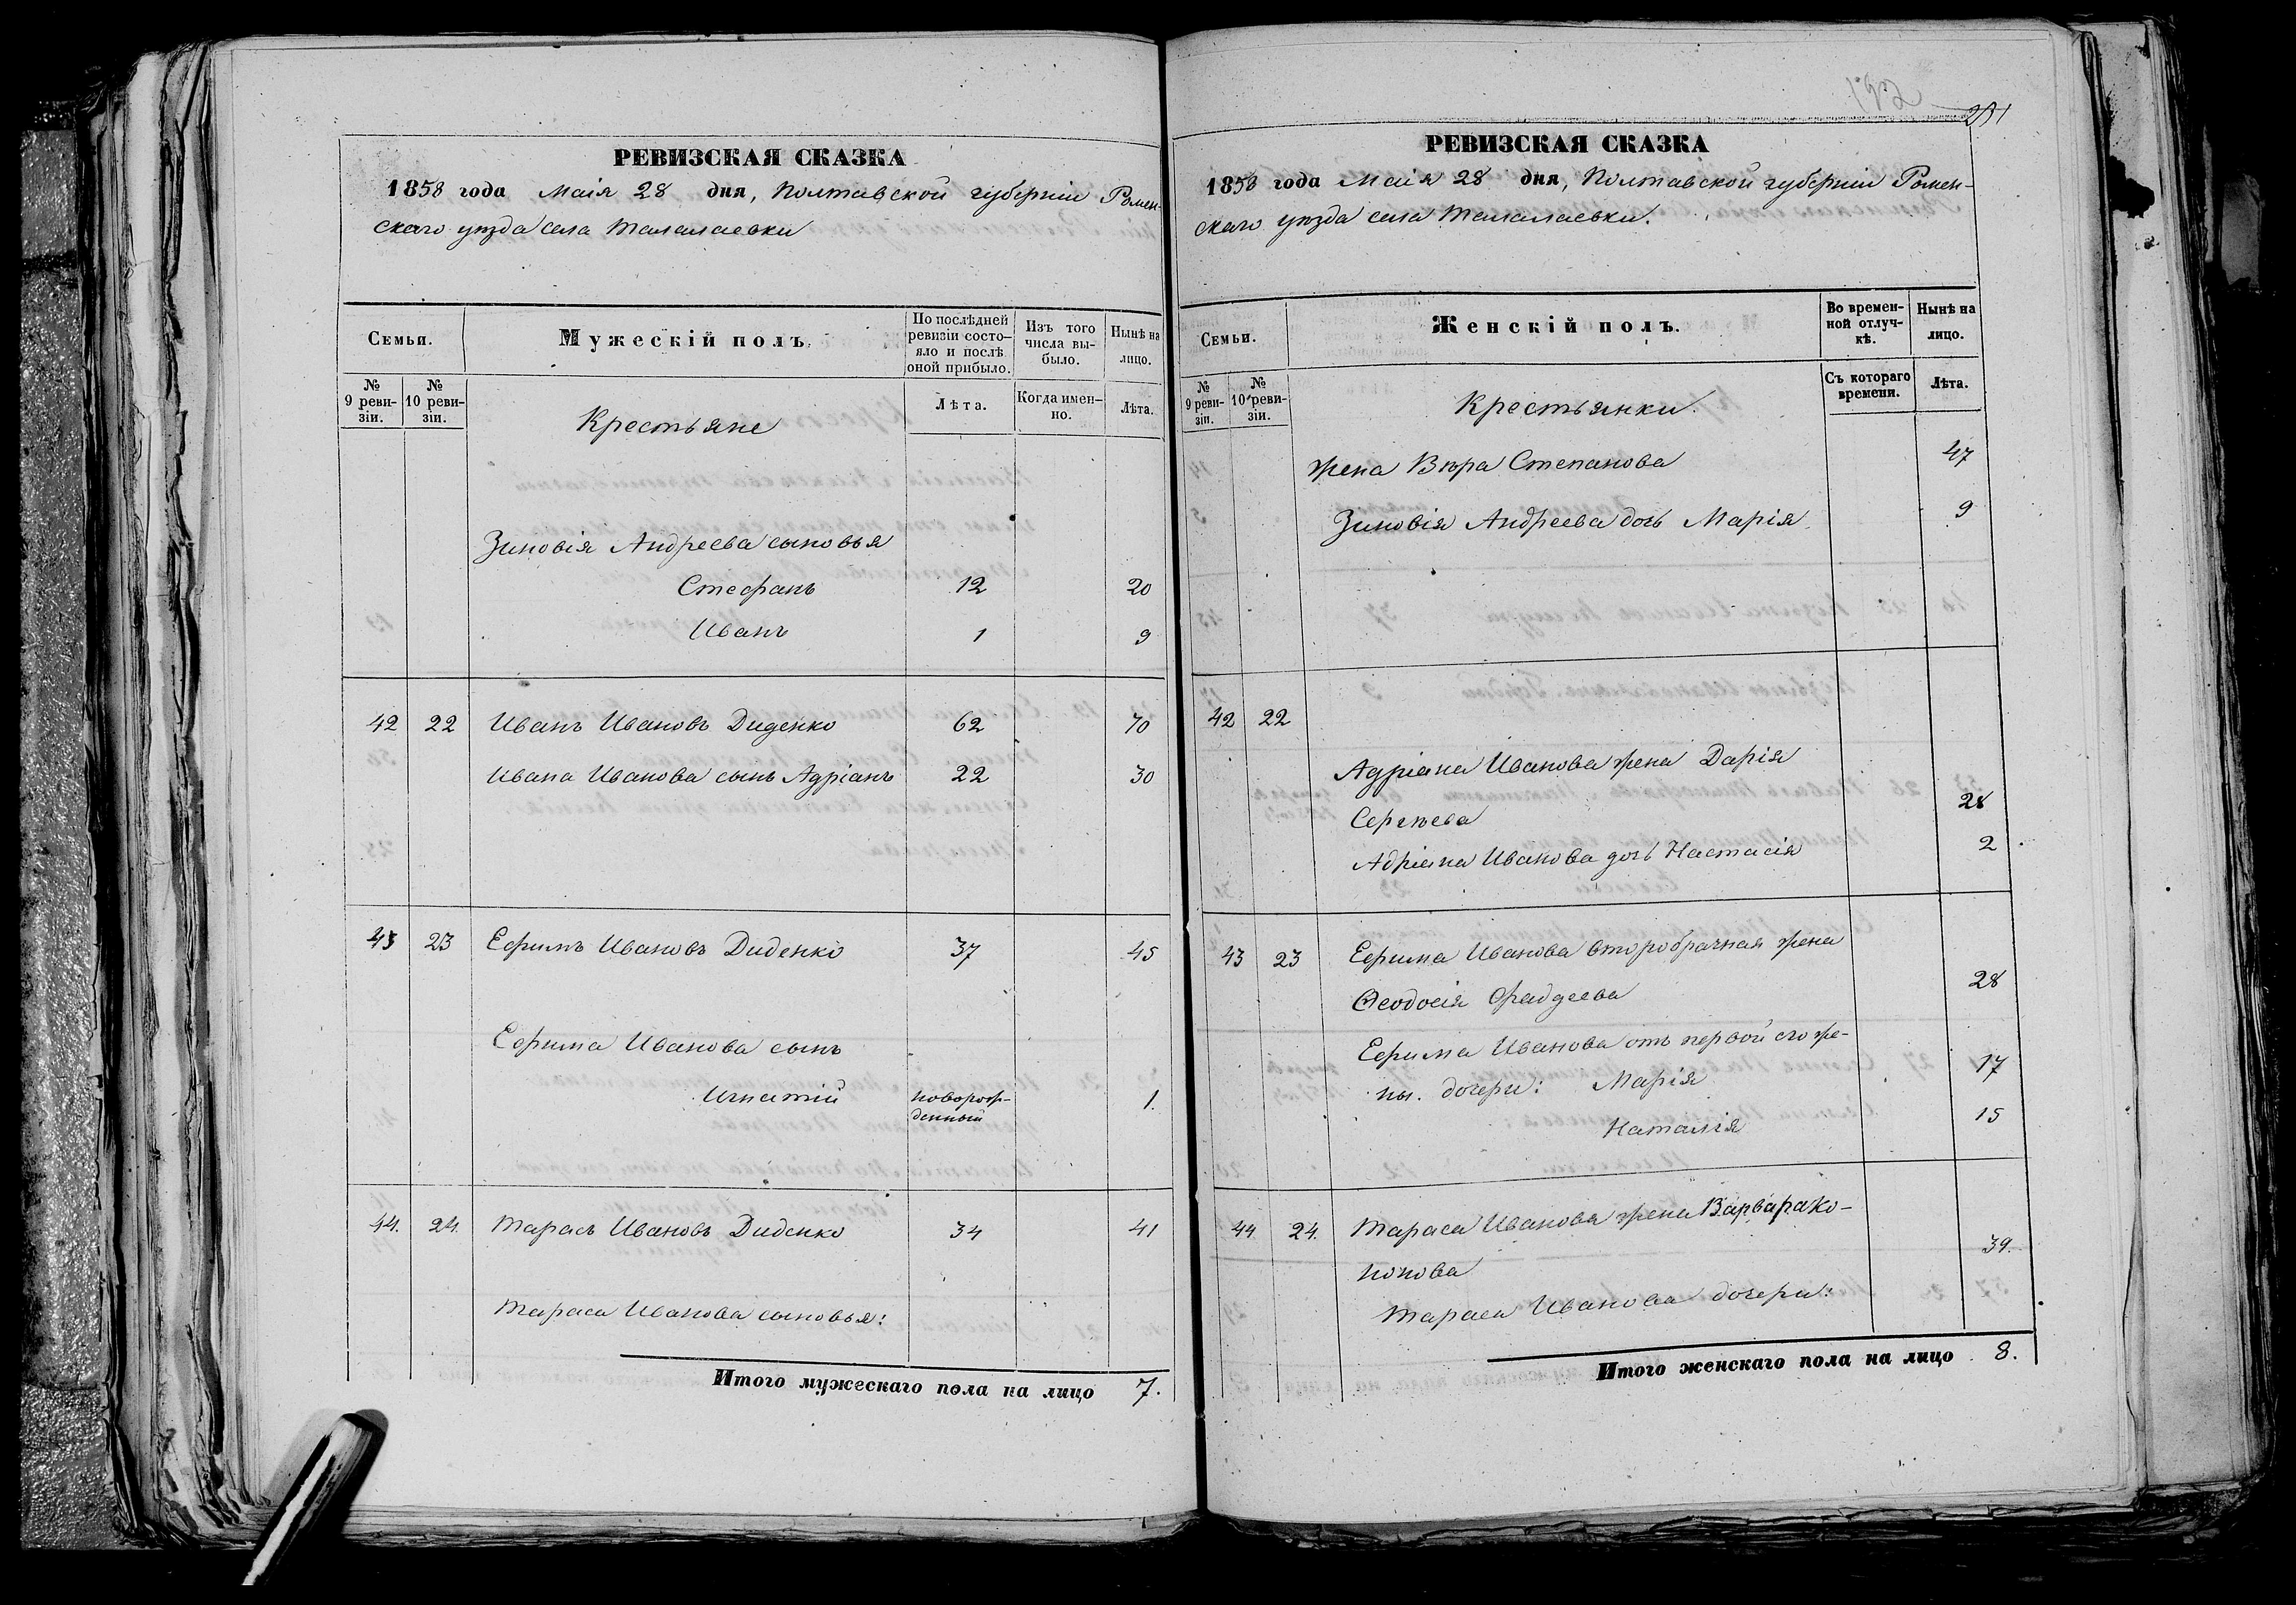 РЕВИЗСКАЯ СКАЗКА
1858 года Маія 28 дня, Полтавской губерніи Ромен-
скаго уѣзда села Талалаевки
Семьи.
Мужескій полъ.
По послѣдней ревизіи состо-
яло и послѣ оной прибыло.
Изъ того числа вы-
было.
Нынѣ на лицо.
№ 9 реви-
зіи.
№ 10 реви-
зіи.
Крестьяне
Лѣта.
Когда имен-
но.
Лѣта.
Зиновія Андреева сыновья
Стефанъ 12 20
Иванъ 1 9
42 22 Иванъ Ивановъ Диденко 62 70
Ивана Иванова сынъ Адріанъ 22 30
43 23 Ефимъ Ивановъ Диденко 37 45
Ефима Иванова сынъ
Игнатій новорож-
денный 1.
44. 24. Тарасъ Ивановъ Диденко 34 41
Тараса Иванова сыновья:
Итого мужескаго пола на лицо 7.
РЕВИЗСКАЯ СКАЗКА
1858 года Маія 28 дня, Полтавской губерніи Ромен-
скаго уѣзда села Талалаевки.
Семьи.
Женскій полъ.
Во времен-
ной отлуч-
кѣ.
Нынѣ на лицо.
№ 9 реви-
зіи.
№ 10 реви-
зіи.
Крестьянки.
Съ котораго времени.
Лѣта.
жена Вѣра Степанова 47
Зиновія Андреева дочь Марія 9
42 22
Адріана Иванова жена Дарія
Сергѣева 28
Адріана Иванова дочь Настасія 2
43 23 Ефима Иванова второбрачная жена
Ѳеодосія Фадѣева 28
Ефима Иванова отъ первой его же-
ны дочери: Марія 17
Наталія 15
44 24. Тараса Иванова жена Варвара Ко-
нонова 39.
Тараса Иванова дочери:
Итого женскаго пола на лицо 8.